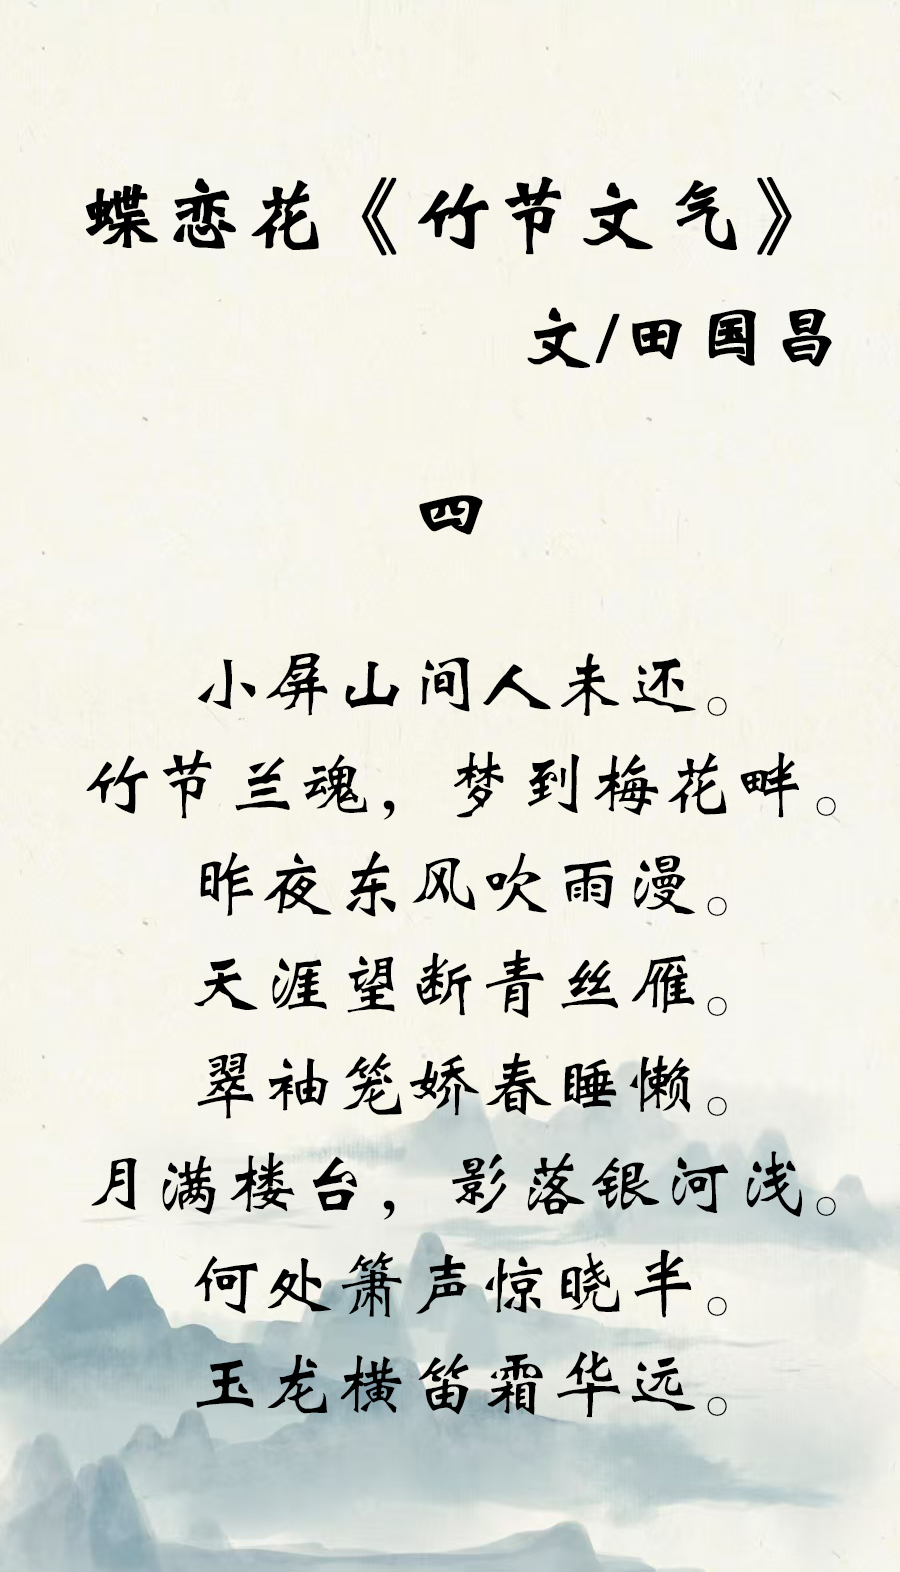 蝶恋花《竹节文气》
文/田国昌
四
小屏山间人未还。
竹节兰魂，梦到梅花畔。
昨夜东风吹雨漫。
天涯望断青丝雁。
翠袖笼娇春睡懒。
月满楼台，影落银河浅。
何处箫声惊晓半。
玉龙横笛霜华远。